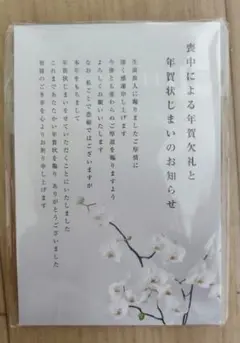 喪中による年賀欠礼と
年賀状じまいのお知らせ
生前故人に賜りましたご厚情に
深く感謝申し上げます
今後とも変わらぬご厚誼を賜りますよう
よろしくお願いいたします
なお 私ごとで恐縮ではございますが
本年をもちまして
年賀状じまいをさせていただくことにいたしました
これまであたたかい年賀状を賜り ありがとうございました
皆様のご多幸を心よりお祈り申し上げます